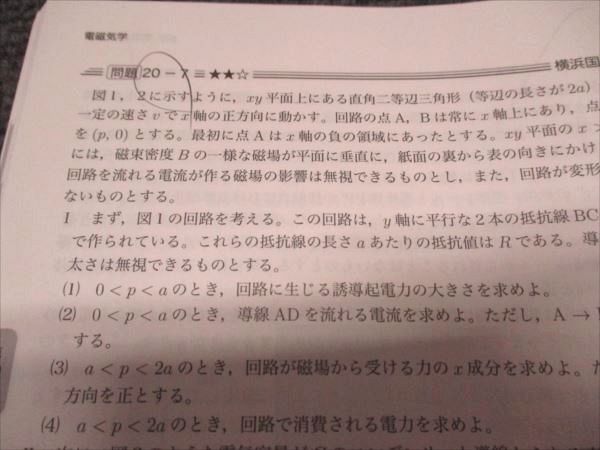 電磁気学
問題 20-7 ★★☆ 横浜国
図1，2に示すように，xy平面上にある直角二等辺三角形（等辺の長さが2a）
一定の速さvでx軸の正方向に動かす。回路の点A，Bは常にx軸上にあり，点
を(p, 0)とする。最初に点Aはx軸の負の領域にあったとする。xy平面のx>
には，磁束密度Bの一様な磁場が平面に垂直に，紙面の裏から表の向きにかけ
回路を流れる電流が作る磁場の影響は無視できるものとし，また，回路が変形
ないものとする。
I まず，図1の回路を考える。この回路は，y軸に平行な2本の抵抗線BC
で作られている。これらの抵抗線の長さaあたりの抵抗値はRである。導
太さは無視できるものとする。
(1) 0<p<aのとき，回路に生じる誘導起電力の大きさを求めよ。
(2) 0<p<aのとき，導線ADを流れる電流を求めよ。ただし，A→
する。
(3) a<p<2aのとき，回路が磁場から受ける力のx成分を求めよ。た
方向を正とする。
(4) a<p<2aのとき，回路で消費される電力を求めよ。